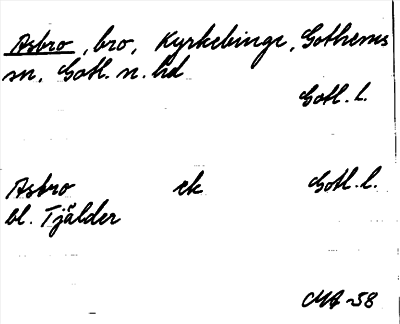 Asbro, bro, Kyrkebinge, Gothems
sn, Gotl. n. hd
Gotl. l.
Asbro ek Gotl. l.
bl. Tjälder
CMA-58